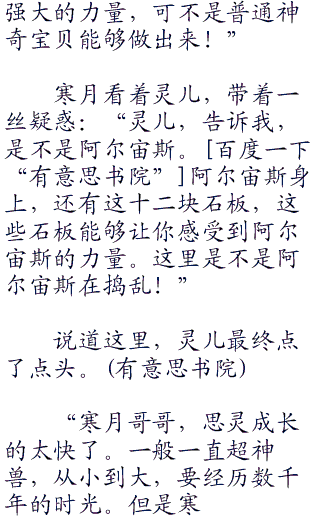 强大的力量，可不是普通神
奇宝贝能够做出来！”
寒月看着灵儿，带着一
丝疑惑：“灵儿，告诉我，
是不是阿尔宙斯。[百度一下
“有意思书院”]阿尔宙斯身
上，还有这十二块石板，这
些石板能够让你感受到阿尔
宙斯的力量。这里是不是阿
尔宙斯在捣乱！”
说道这里，灵儿最终点
了点头。(有意思书院)
“寒月哥哥，思灵成长
的太快了。一般一直超神
兽，从小到大，要经历数千
年的时光。但是寒